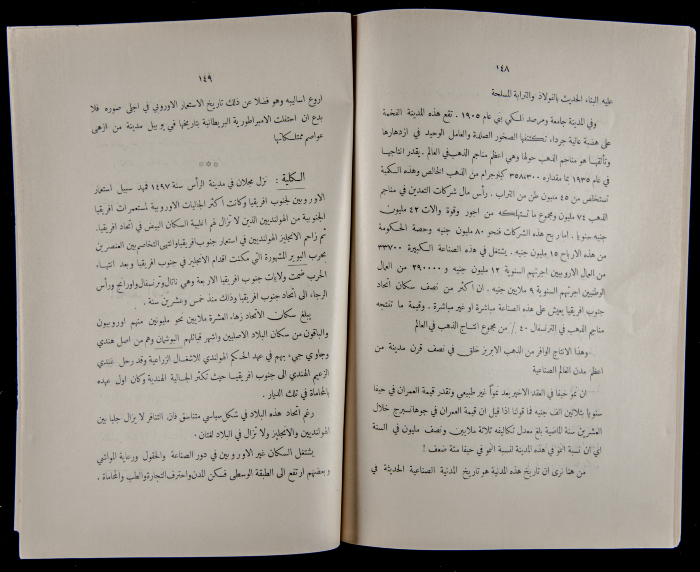 ١٤٨
عليه البناء الحديث بالفولاذ والترابة المسلحة
وفي المدينة جامعة ومرصد فلكي بني عام ١٩٠٥ . تقع هذه المدينة الفخمة
على هضبة عالية جرداء، تكتنفها الصخور الصلدة والعامل الوحيد في ازدهارها
وتألقها هو مناجم الذهب حولها وهي اعظم مناجم الذهب في العالم . يقدر انتاجها
في عام ١٩٣٥ بما مقداره ٣٥٨٬٣٠٠ كيلوجرام من الذهب الخالص وهذه الكمية
تستخلص من ٤٥ مليون طن من التراب . رأس مال شركات التعدين في مناجم
الذهب ٧٤ مليون ومجموع ما تستهلكه من اجور وقوة وآلات ٤٢ مليون
جنيه سنويا . اما ربح هذه الشركات فنحو ٨٠ مليون جنيه وحصة الحكومة
من هذه الارباح ١٥ مليون جنيه . يشتغل في هذه الصناعة الكبيرة ٣٣٧٠٠
من العمال الاروبيين اجرتهم السنوية ١٢ مليون جنيه و ٢٩٠٠٠٠ من العمال
الوطنيين اجرتهم السنوية ٩ ملايين جنيه . ان اكثر من نصف سكان اتحاد
جنوب افريقيا يعيش على هذه الصناعة مباشرة او غير مباشرة . وقيمة ما تنتجه
مناجم الذهب في الترنسفال ٤٠ ٪ من مجموع انتاج الذهب في العالم
وهذا الانتاج الوافر من الذهب الابريز خلق في نصف قرن مدينة من
اعظم مدن العالم الصناعية
ان نمو حيفا في العقد الاخير يعد نمواً غير طبيعي وتقدر قيمة العمران في حيفا
سنويا بثلاثين الف جنيه فما قولنا اذا قيل ان قيمة العمران في جوهانسبرج خلال
العشرين سنة الماضية بلغ معدل تكاليفه ثلاثة ملايين ونصف مليون في السنة
اي ان نسبة النمو في هذه المدينة لنسبة النمو في حيفا مئة ضعف !
من هنا نرى ان تاريخ هذه المدينة هو تاريخ المدنية الصناعية الحديثة في
١٤٩
اروع اساليبه وهو فضلا عن ذلك تاريخ الاستعمار الاوروبي في اجلى صوره فلا
بدع ان احتفلت الامبراطورية البريطانية بتاريخها في يوبيل مدينة من ازهى
عواصم ممتلكاتها
***
الكلية : نزل مجلان في مدينة الرأس سنة ١٤٩٧ فمهد سبيل استعمار
الاوروبيين لجنوب افريقيا وكانت اكثر الجاليات الاوروبية لمستعمرات افريقيا
الجنوبية من الهولنديين الذين لا تزال لهم اغلبية السكان البيض في اتحاد افريقيا.
ثم زاحم الانجليز الهولنديين في استعمار جنوب افريقيا وانتهى التخاصم بين العنصرين
بحرب البوير المشهورة التي مكنت اقدام الانجليز في جنوب افريقيا وبعد انتهاء
الحرب ضمت ولايات جنوب افريقيا الاربعة وهي ناتال وترنسفال واورانج ورأس
الرجاء الى اتحاد جنوب افريقيا وذلك منذ خمس وعشرين سنة .
يبلغ سكان الاتحاد زهاء العشرة ملايين نحو مليونين منهم اوروبيون
والباقون من سكان البلاد الاصليين واشهر قبائلهم البوشمان وهم من اصل هندي
وجاوي جيء بهم في عهد الحكم الهولندي للاشغال الزراعية وقد رحل غندي
الزعيم الهندي الى جنوب افريقيا حيث تكثر الجالية الهندية وكان اول عهده
بالمحاماة في تلك الديار .
رغم اتحاد هذه البلاد في شكل سياسي متناسق فان التنافر لا يزال جليا بين
الهولنديين والانجليز ولا تزال في البلاد لغتان .
يشتغل السكان غير الاوروبيين في دور الصناعة والحقول ورعاية المواشي
وبعضهم ارتفع الى الطبقة الوسطى فسكن المدن واحترف التجارة والطب والمحاماة .